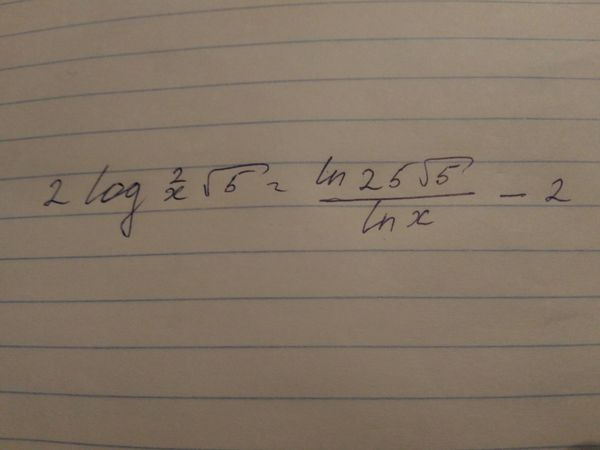 2 log²ₓ √5 = ln 25√5 / ln x − 2